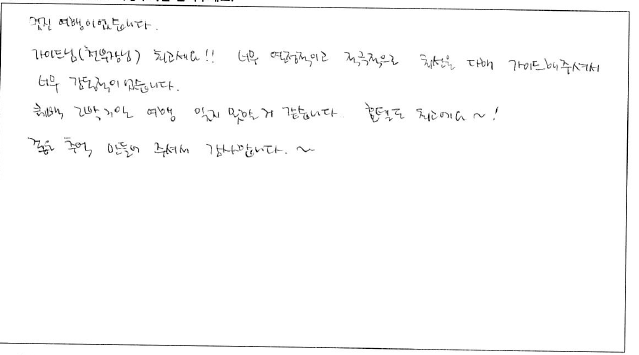 멋진 여행이었습니다.
가이드님(천부장님) 최고세요!! 너무 열정적이고 적극적으로 최선을 다해 가이드해주셔서
너무 감동적이었습니다.
2박3일 여행 잊지 못할거 같습니다. 호텔도 최고에요~!
좋은 추억 만들어 주셔서 감사합니다.~